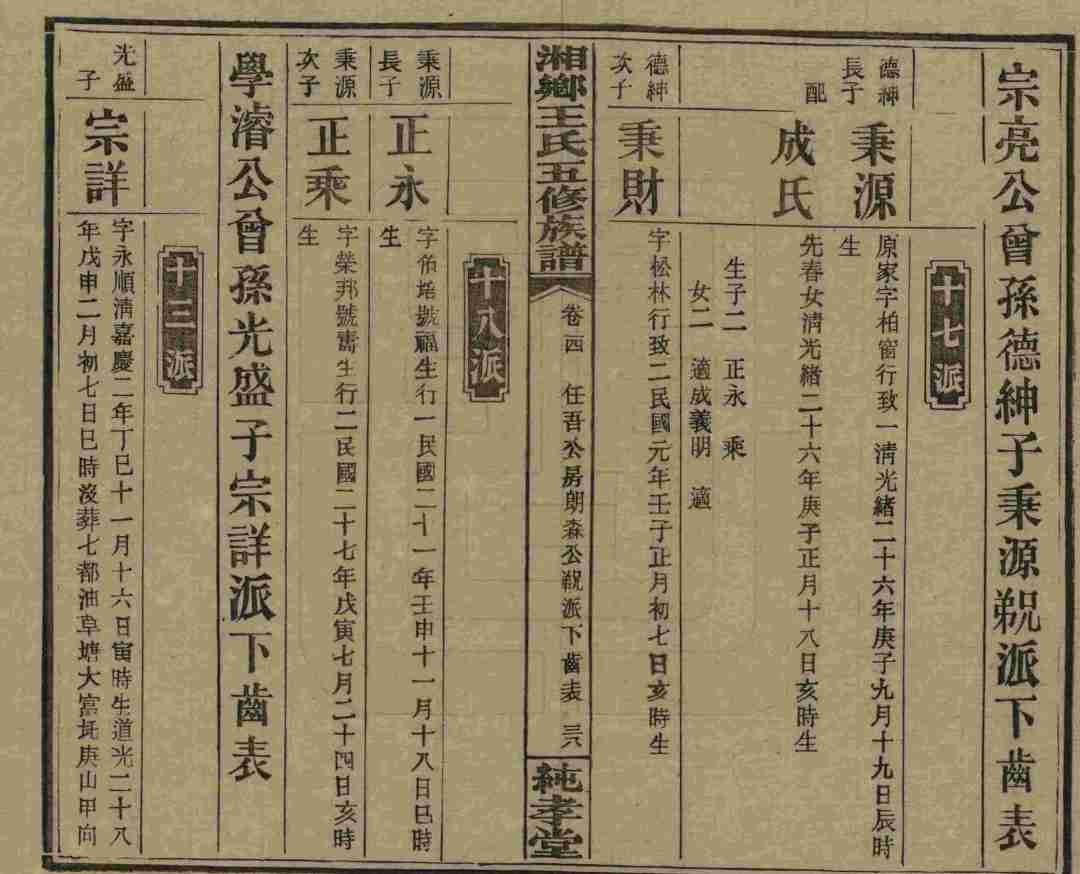 宗亮公曾孫德紳子秉源親派下齒表
十七派
德紳長子
秉源
原家字柏窗行致一清光緒二十六年庚子九月十九日辰時
生
配
成氏
先春女清光緒二十六年庚子正月十八日亥時生
生子二 正永 乘
女二 適成義明 適
德紳次子
秉財
字松林行致二民國元年壬子正月初七日亥時生
湘鄉王氏五修族譜
卷四 任吾公房朗森公親派下齒表 三六
純孝堂
十八派
秉源長子
正永
字佑培號福生行一民國二十一年壬申十一月十八日巳時
生
秉源次子
正乘
字榮邦號壽生行二民國二十七年戊寅七月二十四日亥時
生
學濬公曾孫光盛子宗詳派下齒表
十三派
光盛子
宗詳
字永順清嘉慶二年丁巳十一月十六日寅時生道光二十八
年戊申二月初七日巳時沒葬七都油草塘大富托庚山甲向